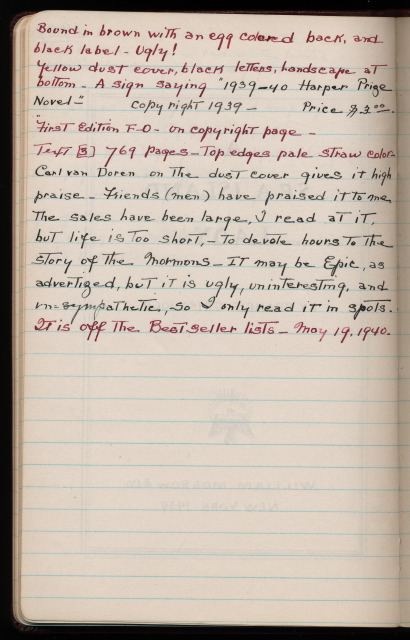 Bound in brown with an egg colored back, and
black label - Ugly!
Yellow dust cover, black letters, landscape at
bottom - A sign saying "1939-40 Harper Prize
Novel" copyright 1939 - Price $3.00.
"First Edition F-O- on copyright page -
Text [3] 769 pages - Top edges pale straw color -
Carl van Doren on the dust cover gives it high
praise - Friends (men) have praised it to me,
The sales have been large, I read at it,
but life is too short, - to devote hours to the
story of the Mormons - IT may be Epic, as
advertized, but it is ugly, uninteresting, and
un-sympathetic, so I only read it in spots.
It is off the Best seller lists - May 19, 1940.
WILLIAM MORROW & CO.
NEW YORK 1939